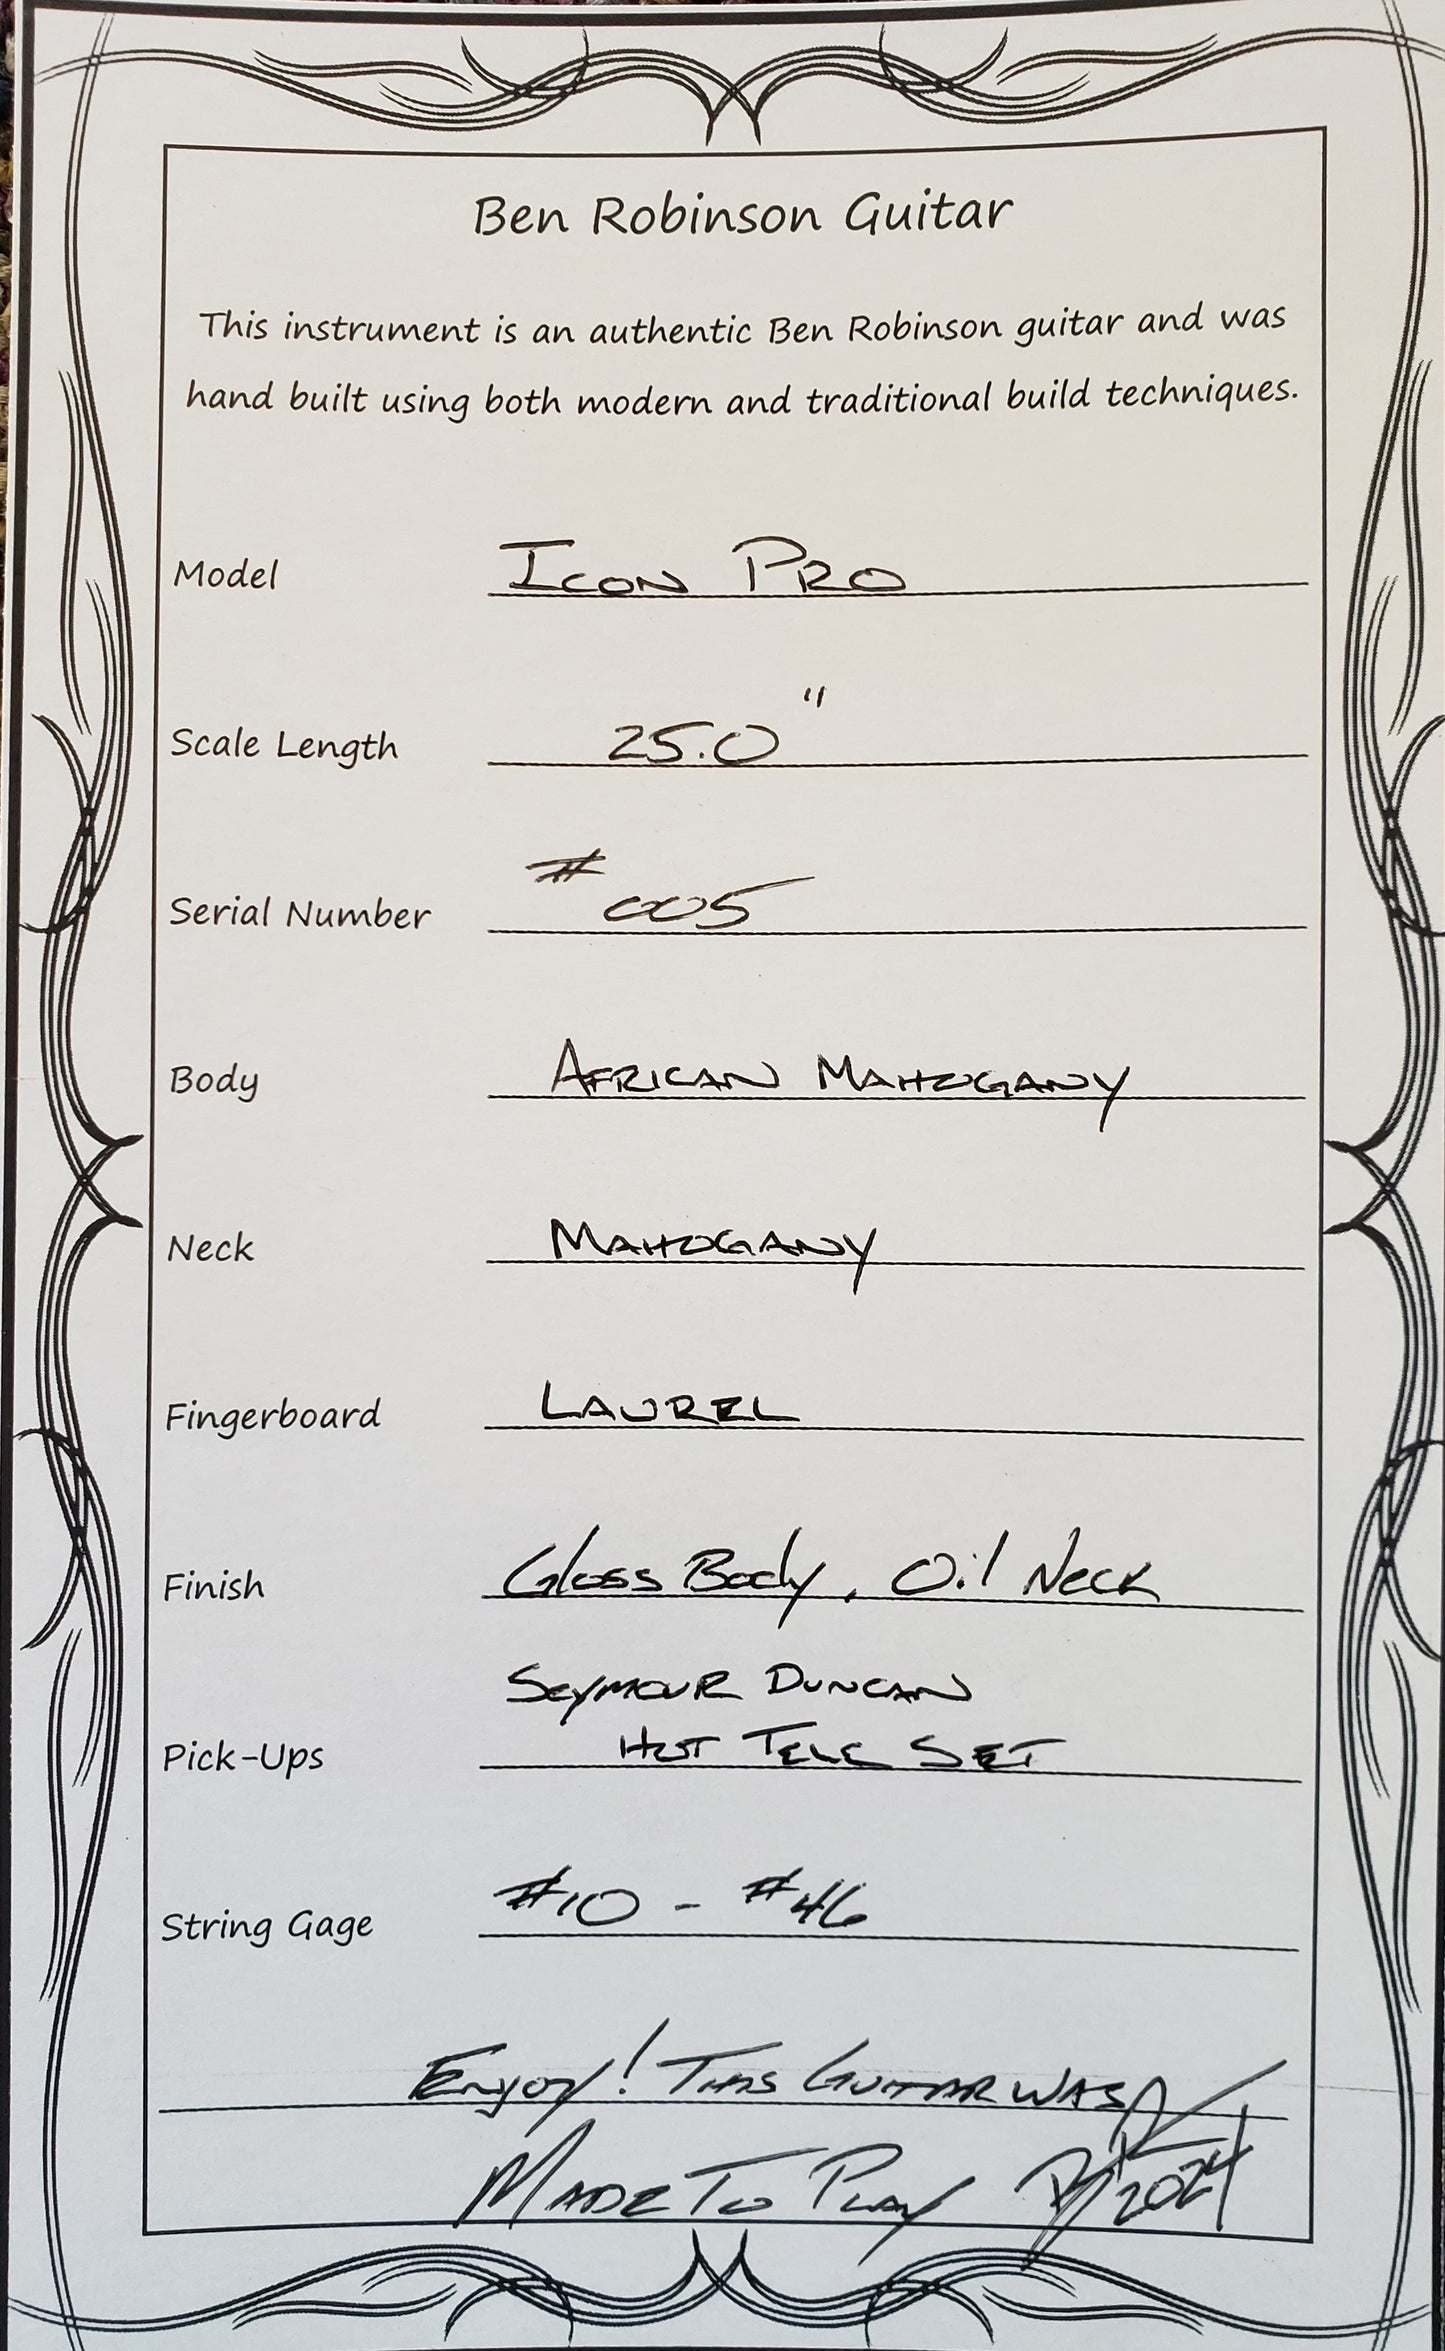 Ben Robinson Guitar
This instrument is an authentic Ben Robinson guitar and was
hand built using both modern and traditional build techniques.
Model ICON PRO
Scale Length 25.0"
Serial Number #005
Body AFRICAN MAHOGANY
Neck MAHOGANY
Fingerboard LAUREL
Finish Gloss Body, Oil Neck
SEYMOUR DUNCAN
Pick-Ups HOT TELE SET
String Gage #10 - #46
ENJOY! THIS GUITAR WAS
MADE TO PLAY 2024